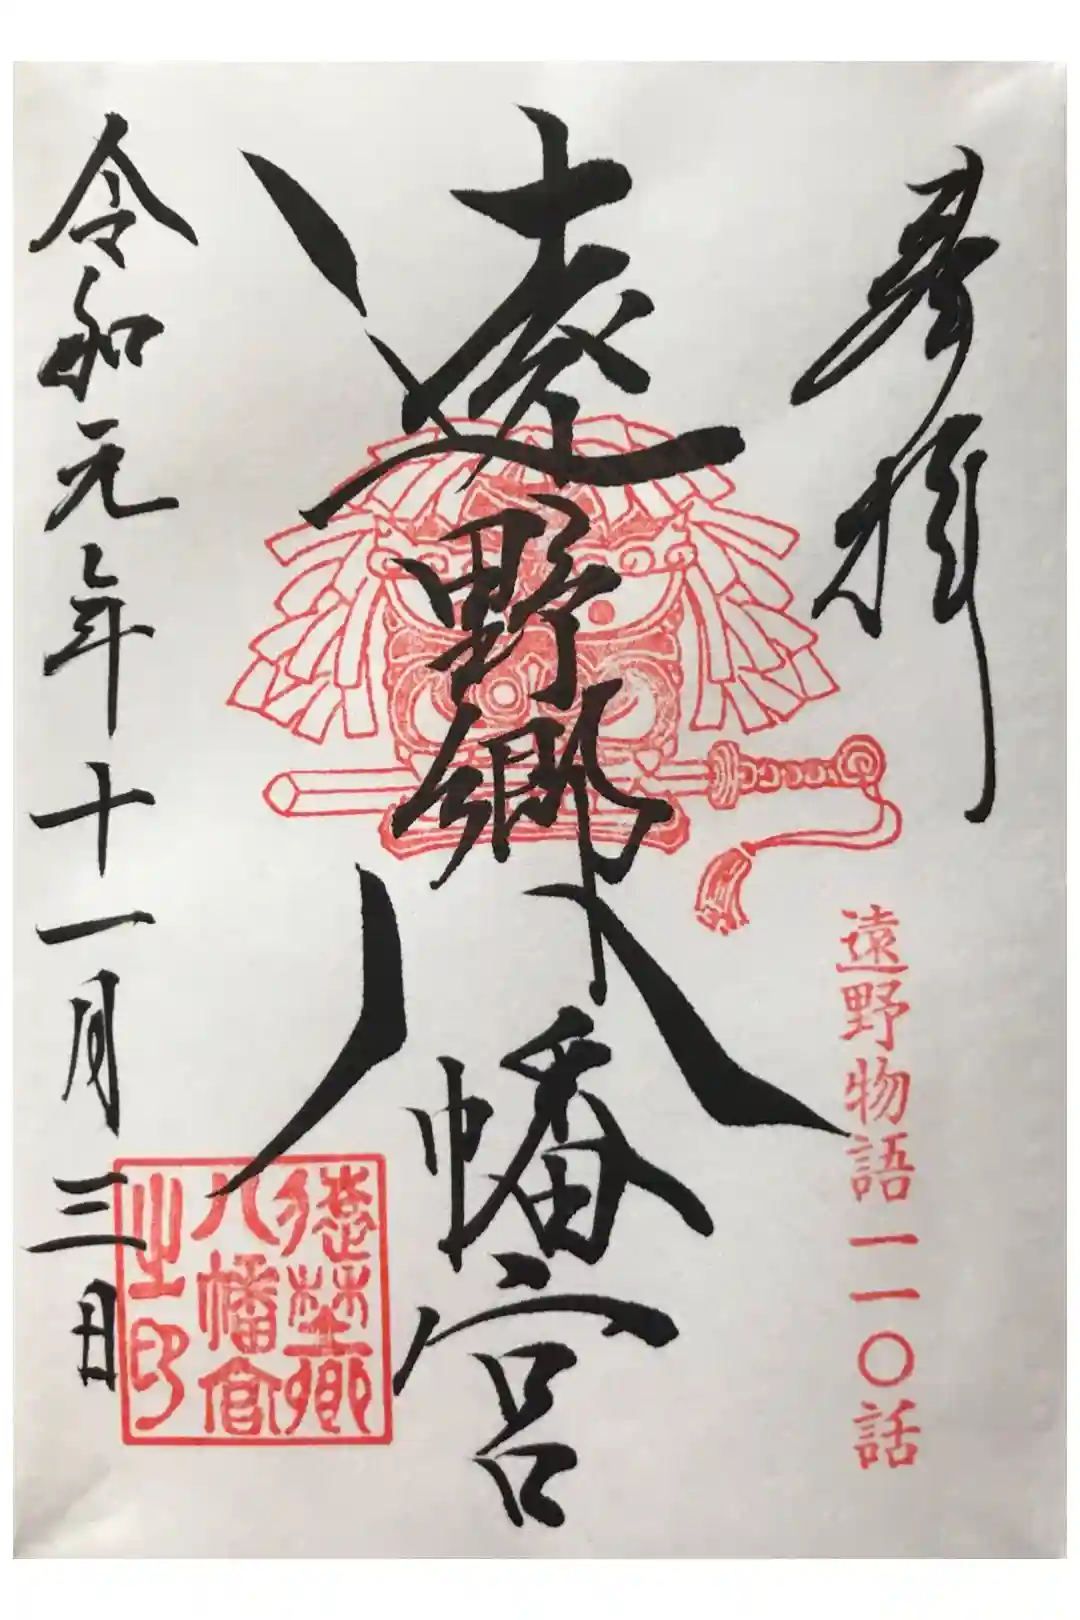 奉拝
遠野物語一一〇話
遠野郷八幡宮
遠野郷
八幡宮
之印
令和元年十一月三日